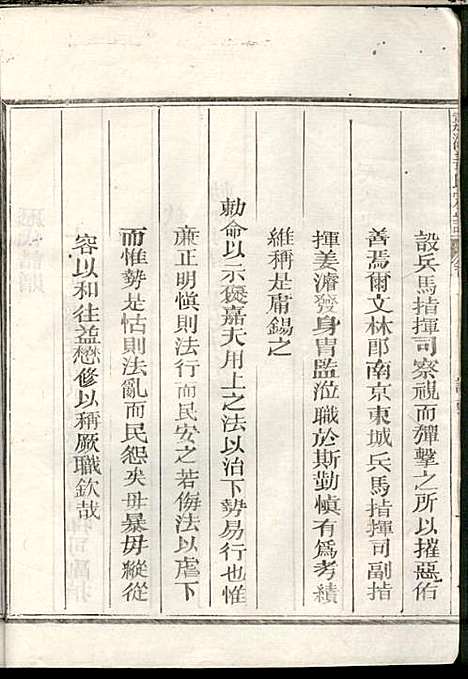 設兵馬指揮司察視而彈擊之所以摧惡佑
善焉爾文林郎南京東城兵馬指揮司副指
揮姜濬發身胄監涖職於斯勤慎有為考績
維稱是庸錫之
勅命以示褒嘉夫用上之法以治下勢易行也惟
廉正明慎則法行而民安之若侮法以虐下
而惟勢是怙則法亂而民怨矣毋暴毋縱從
容以和往益懋修以稱厥職欽哉